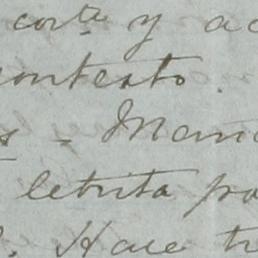 corta y ac
contexto.
s = Man
letrita pa
Hace t